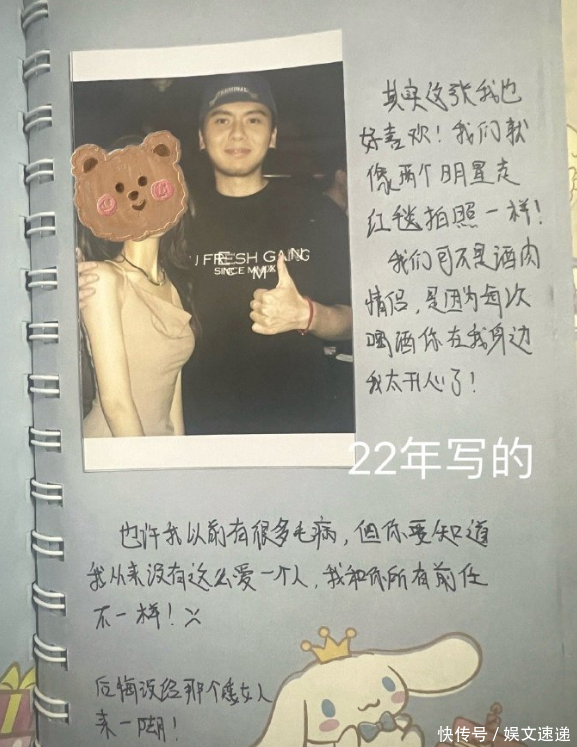 其实这张我也
好喜欢！我们就
像两个明星走
红毯拍照一样！
我们可不是酒肉
情侣，是因为每次
喝酒你在我身边
我太开心了！
FRESH GANG
SINCE
22年写的
也许我以前有很多毛病，但你要知道
我从来没有这么爱一个人，我和你所有前任
不一样！
后悔没给那个女人
来一脚！
快传号／娱文速递